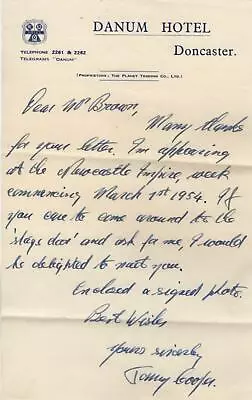 DANUM HOTEL
Doncaster.
TELEPHONE 2261 & 2262
TELEGRAMS "DANUM"
(PROPRIETORS: THE PLANET TRADING CO., LTD.)
Dear Mr Brown,
Many thanks
for your letter. I'm appearing
at the Newcastle Empire, week
commencing March 1st 1954. If
you care to come around to the
'stage door' and ask for me, I would
be delighted to meet you.
Enclosed a signed photo.
Best Wishes
Yours sincerely
Tommy Cooper.